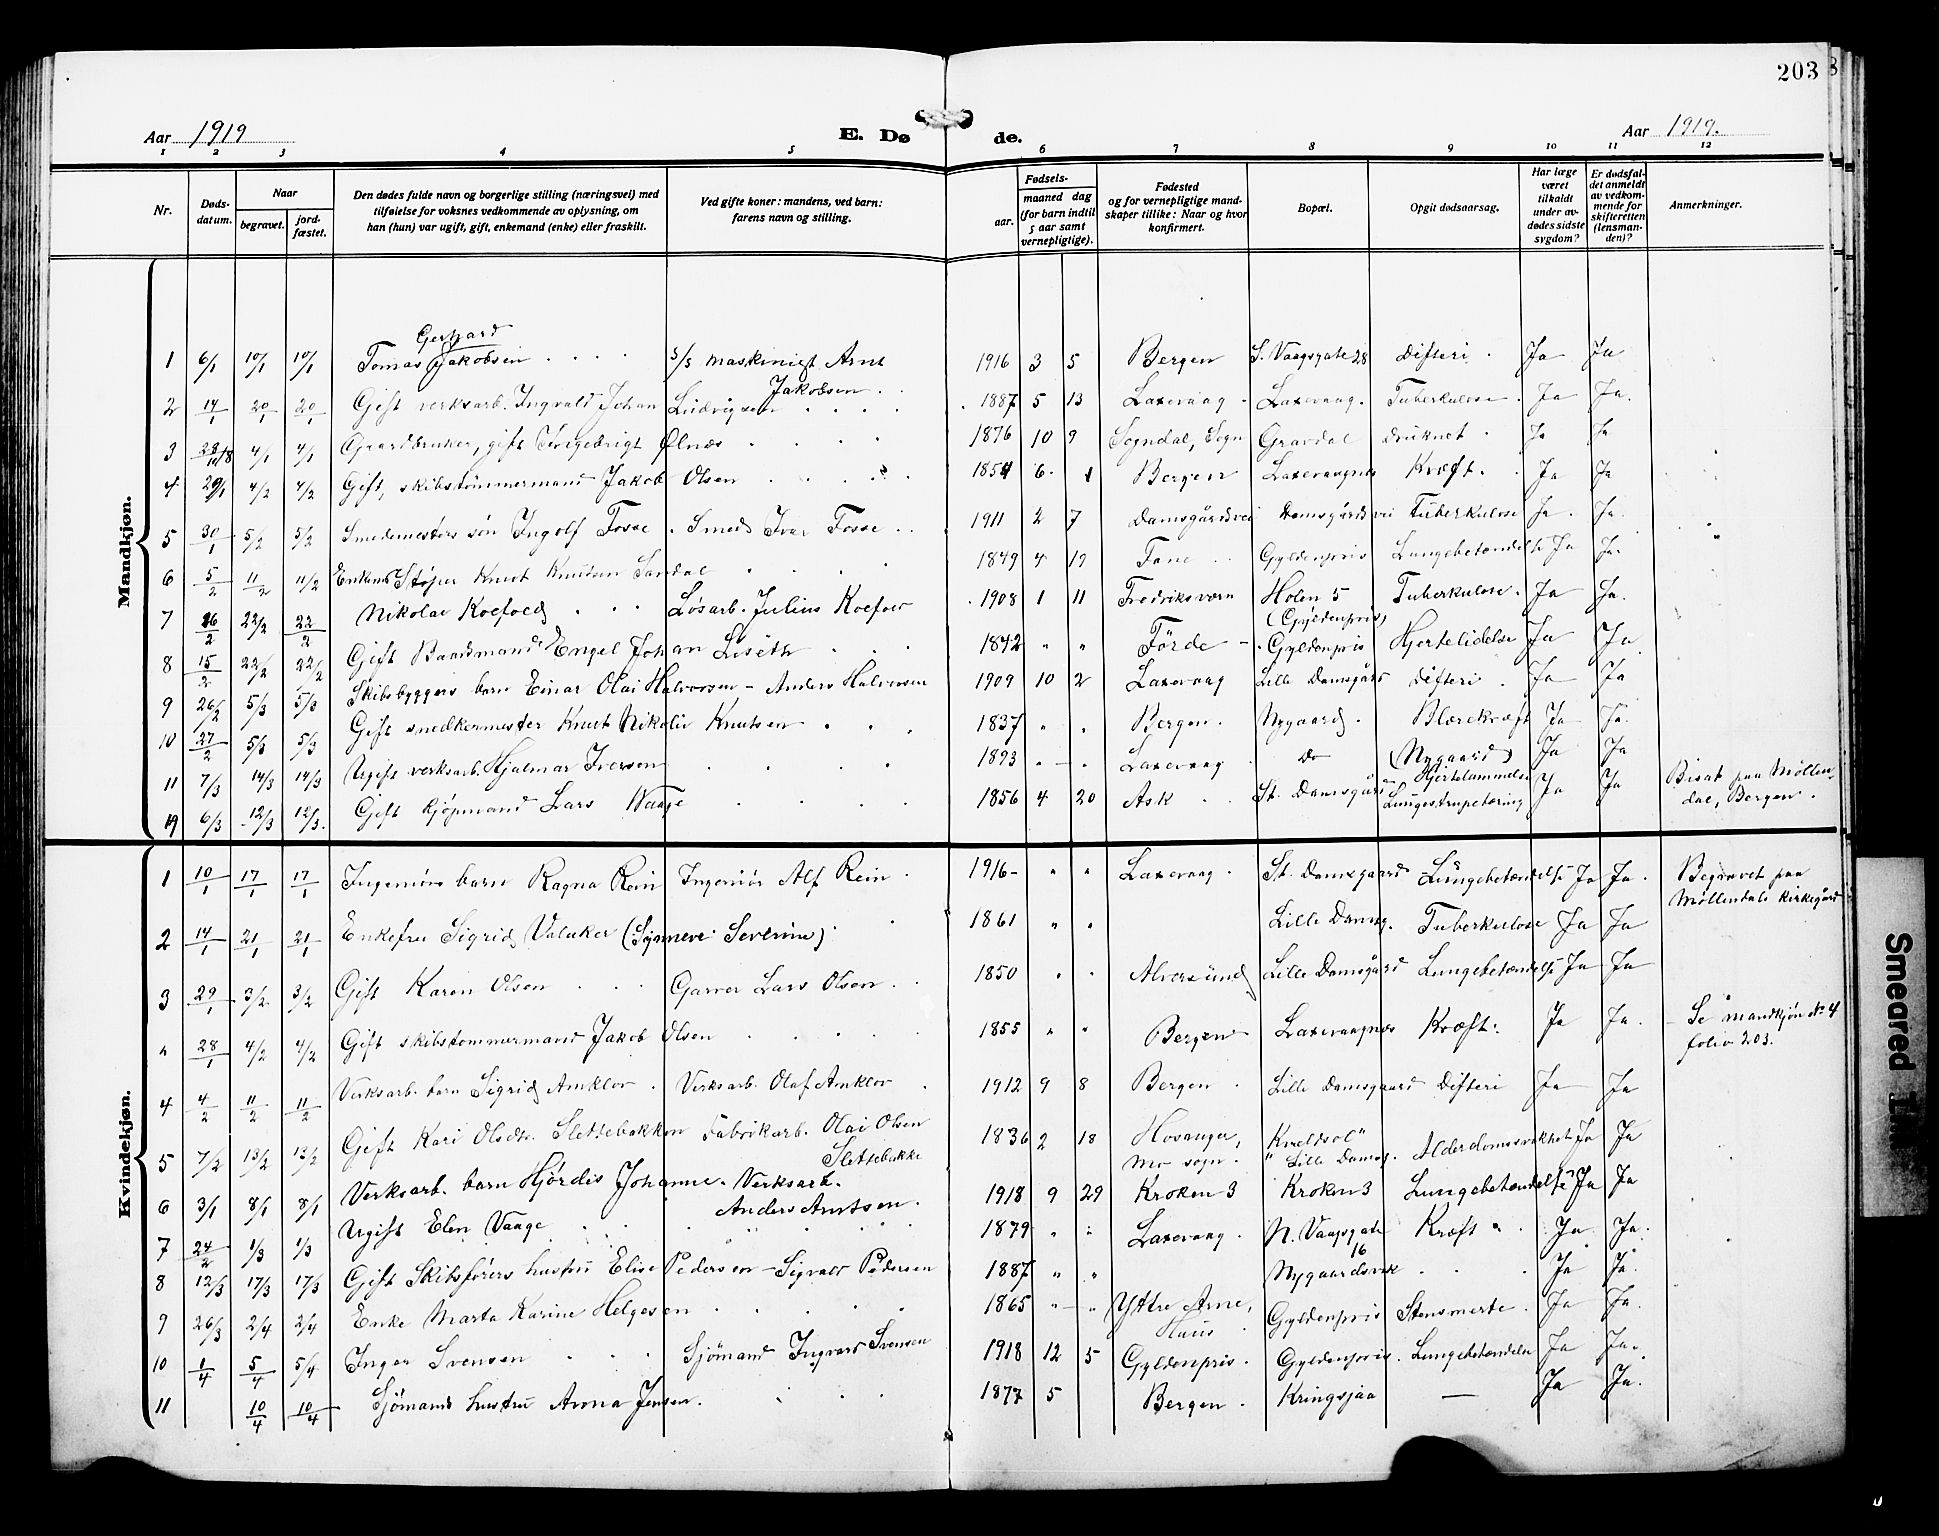 203
Aar 1919
E. Dø de.
Aar 1919.
1 2 3 4 5 6 7 8 9 10 11 12
Nr.
Døds-
datum.
Naar
begravet.
jord-
fæstet.
Den dødes fulde navn og borgerlige stilling (næringsvei) med
tilføielse for voksnes vedkommende av oplysning, om
han (hun) var ugift, gift, enkemand (enke) eller fraskilt.
Ved gifte koner: mandens, ved barn:
farens navn og stilling.
aar.
Fødsels-
maaned dag
(for barn indtil
5 aar samt
vernepligtige).
Fødested
og for vernepligtige mand-
skaper tillike: Naar og hvor
konfirmert.
Bopæl.
Opgit dødsaarsag.
Har læge
været
tilkaldt
under av-
dødes sidste
sygdom?
Er dødsfal-
det anmeldt
av vedkom-
mende for
skifteretten
(lensman-
den)?
Anmerkninger.
Mandkjøn.
Gerhard
1 6/1 10/1 10/1 Tomas Jakobsen s/s maskinist Arnt Jakobsen 1916 3 5 Bergen S. Vaagsgate 28 Difteri Ja Ja
2 14/1 20/1 20/1 Gift verksarb. Ingvald Johan Ludvigsen 1887 5 13 Laxevaag Laxevaag Tuberkulose Ja Ja
3 4/1 4/1 Gaardbruker, gift Ingebrigt Ølnæs 1876 10 9 Sogndal, Sogn Gravdal druknet Ja Ja
4 29/1 4/2 4/2 Gift, skibstømmermand Jakob Olsen 1854 6 1 Bergen Laxevaagnes Kræft. Ja Ja
5 30/1 5/2 5/2 Smedemesters søn Ingolf Fosse Smed Ivar Fosse 1911 2 7 Damsgårdsvei Damsgårdsvei Tuberkulose Ja Ja
6 5/2 11/2 11/2 Enkemd Støper Knut Knutsen Sandal 1849 4 19 Fane Gyldenpris Lungebetændelse Ja Ja
7 16/2 22/2 22/2 Nikolai Koefoed Løsarb. Julius Koefoed 1908 1 11 Fredriksværn Holen 5 (Gyldenpris) Tuberkulose Ja Ja
8 15/2 22/2 22/2 Gift Baadsmand Engel Johan Liseth 1842 " " Førde Gyldenpris Hjertelidelse Ja Ja
9 26/2 5/3 5/3 Skibsbyggers barn Einar Olai Halvorsen - Anders Halvorsen 1909 10 2 Laxevaag Lille Damsgård Difteri Ja Ja
10 27/2 5/3 5/3 Gift snedkermester Knut Nikolai Knutsen 1837 " " Bergen Nygaard Blærekræft Ja Ja
11 7/3 14/3 14/3 Ugift verksarb. Hjalmar Iversen 1893 Laxevaag Do (Nygaard) Ja Ja
6/3 12/3 12/3 Gift kjøpmand Lars Waage 1856 4 20 Ask St. Damsgård Hjertelammelse Ja Ja Bisat paa Møllendal, Bergen.
Kvindekjøn.
1 10/1 17/1 17/1 Ingeniørs barn Ragna Rein Ingeniør Alf Rein 1916 " " Laxevaag St. Damsgaard Lungebetændelse Ja Ja Begravet paa Møllendals kirkegård
2 14/1 21/1 21/1 Enkefru Sigrid Valaker (Synneve Severine) 1861 " " Lille Damsg. Tuberkulose Ja Ja
3 29/1 3/2 3/2 Gift Karen Olsen Garver Lars Olsen 1850 " " Alversund Lille Damsgård Lungebetændelse Ja Ja
" 28/1 4/2 4/2 Gift skibstømmermand Jakob Olsen 1855 " " Bergen Laxevaagnes Kræft Ja Ja Se mandkjøn No 4 folio 203.
4 4/2 11/2 11/2 Verksarb. barn Sigrid Amklov Verksarb. Olaf Amklov 1912 9 8 Bergen Lille Damsgaard Difteri Ja Ja
5 7/2 13/2 13/2 Gift Kari Olsdtr. Slettebakken Fabrikarb. Olai Olsen Slettebakke 1836 2 18 Hosanger, Mo sogn. "Kveldsol" Lille Damsg. Alderdomssvakhet Ja Ja
6 3/1 8/1 8/1 Verksarb. barn Hjørdis Johanne Verksarb. Anders Arntsen. 1918 9 29 Kroken 3 Kroken 3 Lungebetændelse Ja Ja
7 24/2 1/3 1/3 Ugift Elen Vaage 1879 " " Laxevaag N. Vaagsgate 16 Kræft Ja Ja
8 12/3 17/3 17/3 Gift Skibsførers hustru Elise Pedersen - Sigvald Pedersen 1887 " " Nygaardsvik Ja Ja
9 26/3 2/4 2/4 Enke Marta Karine Helgesen 1865 " " Yttre Arne, Haus Gyldenpris Stensmerte Ja Ja
10 1/4 5/4 5/4 Inger Svensen Sjömand Ingvard Svensen 1918 12 5 Gyldenpris Gyldenpris Lungebetændelse Ja Ja
11 10/4 10/4 Sjömands hustru Anna Jensen 1877 5 Bergen Kringsjaa — Ja Ja
Smeared Ink